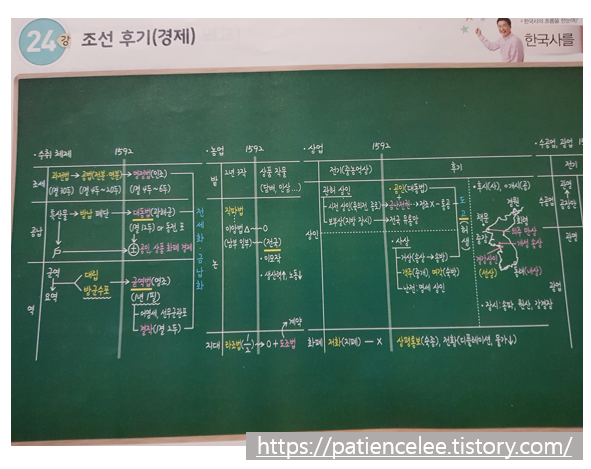 • 한국사의 흐름을 한눈에!
24강 조선 후기(경제)
한국사를
• 수취 체제
1592
조세
과전법 → 공법(전분·연분) → 영정법(인조)
(1결 30두) (1결 4두~20두) (1결 4두~6두)
공납
특산물 → 방납 폐단 → 대동법(광해군)
(1결 12두) or 동전, 포
공인, 상품 화폐 경제
전세화·금납화
역
군역
요역
대립
방군수포
균역법(영조)
(1년 1필)
어염세, 선무군관포
결작(1결 2두)
• 농업
1592
밭
2년 3작
상품 작물
(담배, 인삼...)
논
직파법
이앙법 △ → O
(남부 일부) (전국)
• 이모작
• 생산력↑, 노동↓
지대
타조법(1/2) → O + 도조법
계약
• 상업
1592
전기(중농억상)
후기
상인
관허 상인
• 시전 상인
• 보부상(지방 장시) → 전국 유통망
• 공인(대동법)
금난전권
• 사상
• 객주(중개) 여각
• 난전:
도고(허생)
• 후시(사), 개시(공)
책문
경원
회령
중강
의주 만상
개성 송상
경강상인
(선상)
동래(내상)
• 장시: 송파, 원산, 강경장
화폐
저화(지폐) — X
상평통보(숙종), 전황(디플레이션, 물가↓)
• 수공업, 광업
전기
관영
공장안
관영
광업
https://patiencelee.tistory.com/